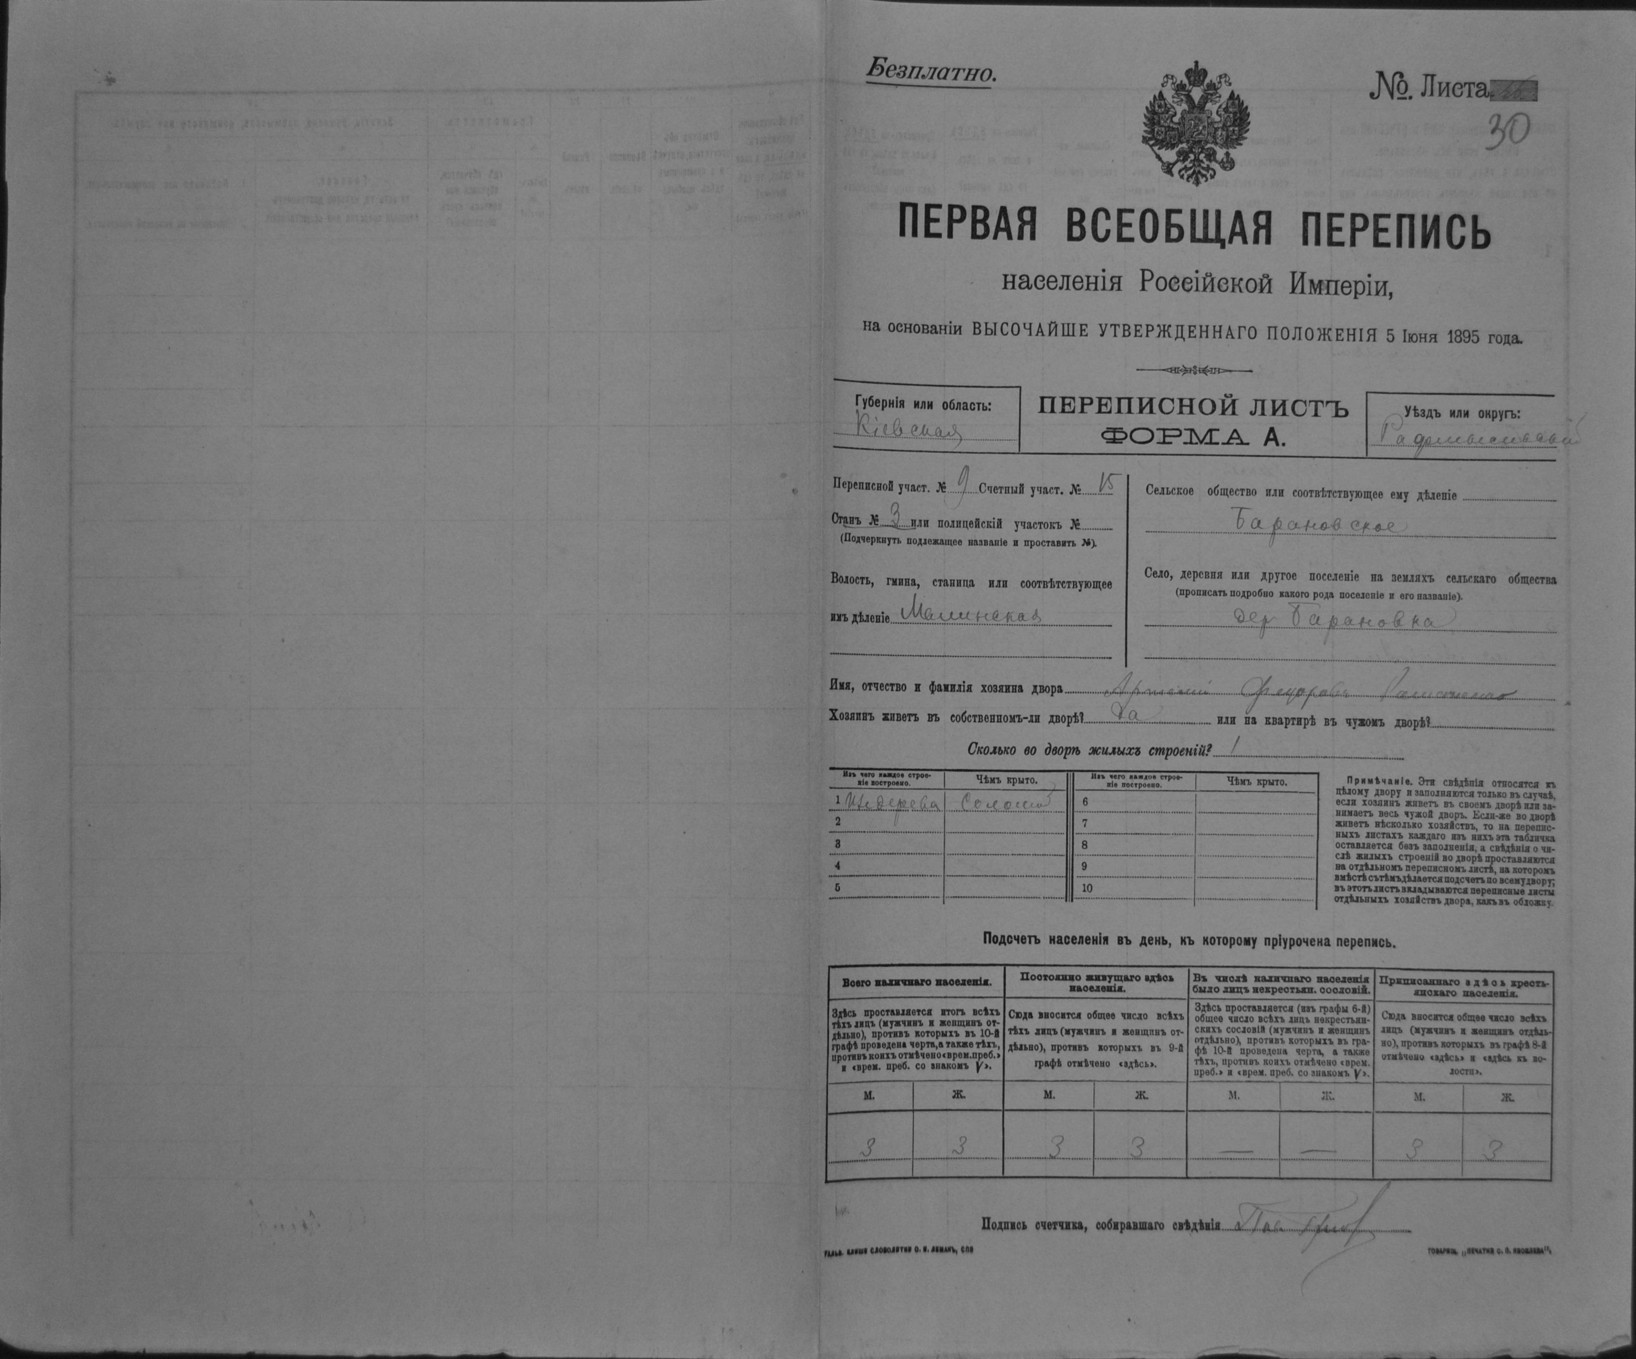 Безплатно.
№. Листа
30
ПЕРВАЯ ВСЕОБЩАЯ ПЕРЕПИСЬ
населенія Россійской Имперіи,
на основаніи ВЫСОЧАЙШЕ УТВЕРЖДЕННАГО ПОЛОЖЕНІЯ 5 Іюня 1895 года.
Губернія или область:
Кіевская
ПЕРЕПИСНОЙ ЛИСТЪ
ФОРМА А.
Уѣздъ или округъ:
Радомысльскій
Переписной участ. № 9 Счетный участ. № 15
Станъ № 3 или полицейскій участокъ №
(Подчеркнуть подлежащее названіе и проставить №).
Волость, гмина, станица или соотвѣтствующее
имъ дѣленіе Малинская
Сельское общество или соотвѣтствующее ему дѣленіе
Барановское
Село, деревня или другое поселеніе на земляхъ сельскаго общества
(прописать подробно какого рода поселеніе и его названіе).
дер Барановка
Имя, отчество и фамилія хозяина двора
Хозяинъ живетъ въ собственномъ-ли дворѣ? Да или на квартирѣ въ чужомъ дворѣ?
Сколько во дворѣ жилыхъ строеній? 1
Изъ чего каждое строе-
ніе построено.
Чѣмъ крыто.
Изъ чего каждое строе-
ніе построено.
Чѣмъ крыто.
1 Изъ дерева Соломой 6
2 7
3 8
4 9
5 10
Примѣчаніе. Эти свѣдѣнія относятся къ
цѣлому двору и заполняются только въ случаѣ,
если хозяинъ живетъ въ своемъ дворѣ или за-
нимаетъ весь чужой дворъ. Если-же во дворѣ
живетъ нѣсколько хозяйствъ, то на перепис-
ныхъ листахъ каждаго изъ нихъ эта табличка
оставляется безъ заполненія, а свѣдѣнія о чи-
слѣ жилыхъ строеній во дворѣ проставляются
на отдѣльномъ переписномъ листѣ, на которомъ
вмѣстѣ съ тѣмъ дѣлается подсчетъ по всему двору;
въ этотъ листъ вкладываются переписные листы
отдѣльныхъ хозяйствъ двора, какъ въ обложку.
Подсчетъ населенія въ день, къ которому пріурочена перепись.
Всего наличнаго населенія.
Здѣсь проставляется итогъ всѣхъ
тѣхъ лицъ (мужчинъ и женщинъ от-
дѣльно), противъ которыхъ въ 10-й
графѣ проведена черта, а также тѣхъ,
противъ коихъ отмѣчено «врем. преб.»
и «врем. преб. со знакомъ V».
Постоянно живущаго здѣсь
населенія.
Сюда вносится общее число всѣхъ
тѣхъ лицъ (мужчинъ и женщинъ от-
дѣльно), противъ которыхъ въ 9-й
графѣ отмѣчено «здѣсь».
Въ числѣ наличнаго населенія
было лицъ некрестьян. сословій.
Здѣсь проставляется (изъ графы 6-й)
общее число всѣхъ лицъ некрестьян-
скихъ сословій (мужчинъ и женщинъ
отдѣльно), противъ которыхъ въ гра-
фѣ 10-й проведена черта, а также
тѣхъ, противъ коихъ отмѣчено «врем.
преб.» и «врем. преб. со знакомъ V».
Приписаннаго здѣсь кресть-
янскаго населенія.
Сюда вносится общее число всѣхъ
лицъ (мужчинъ и женщинъ отдѣль-
но), противъ которыхъ въ графѣ 8-й
отмѣчено «здѣсь» и «здѣсь въ во-
лости».
М. Ж. М. Ж. М. Ж. М. Ж.
3 3 3 3 — — 3 3
Подпись счетчика, собиравшаго свѣдѣнія